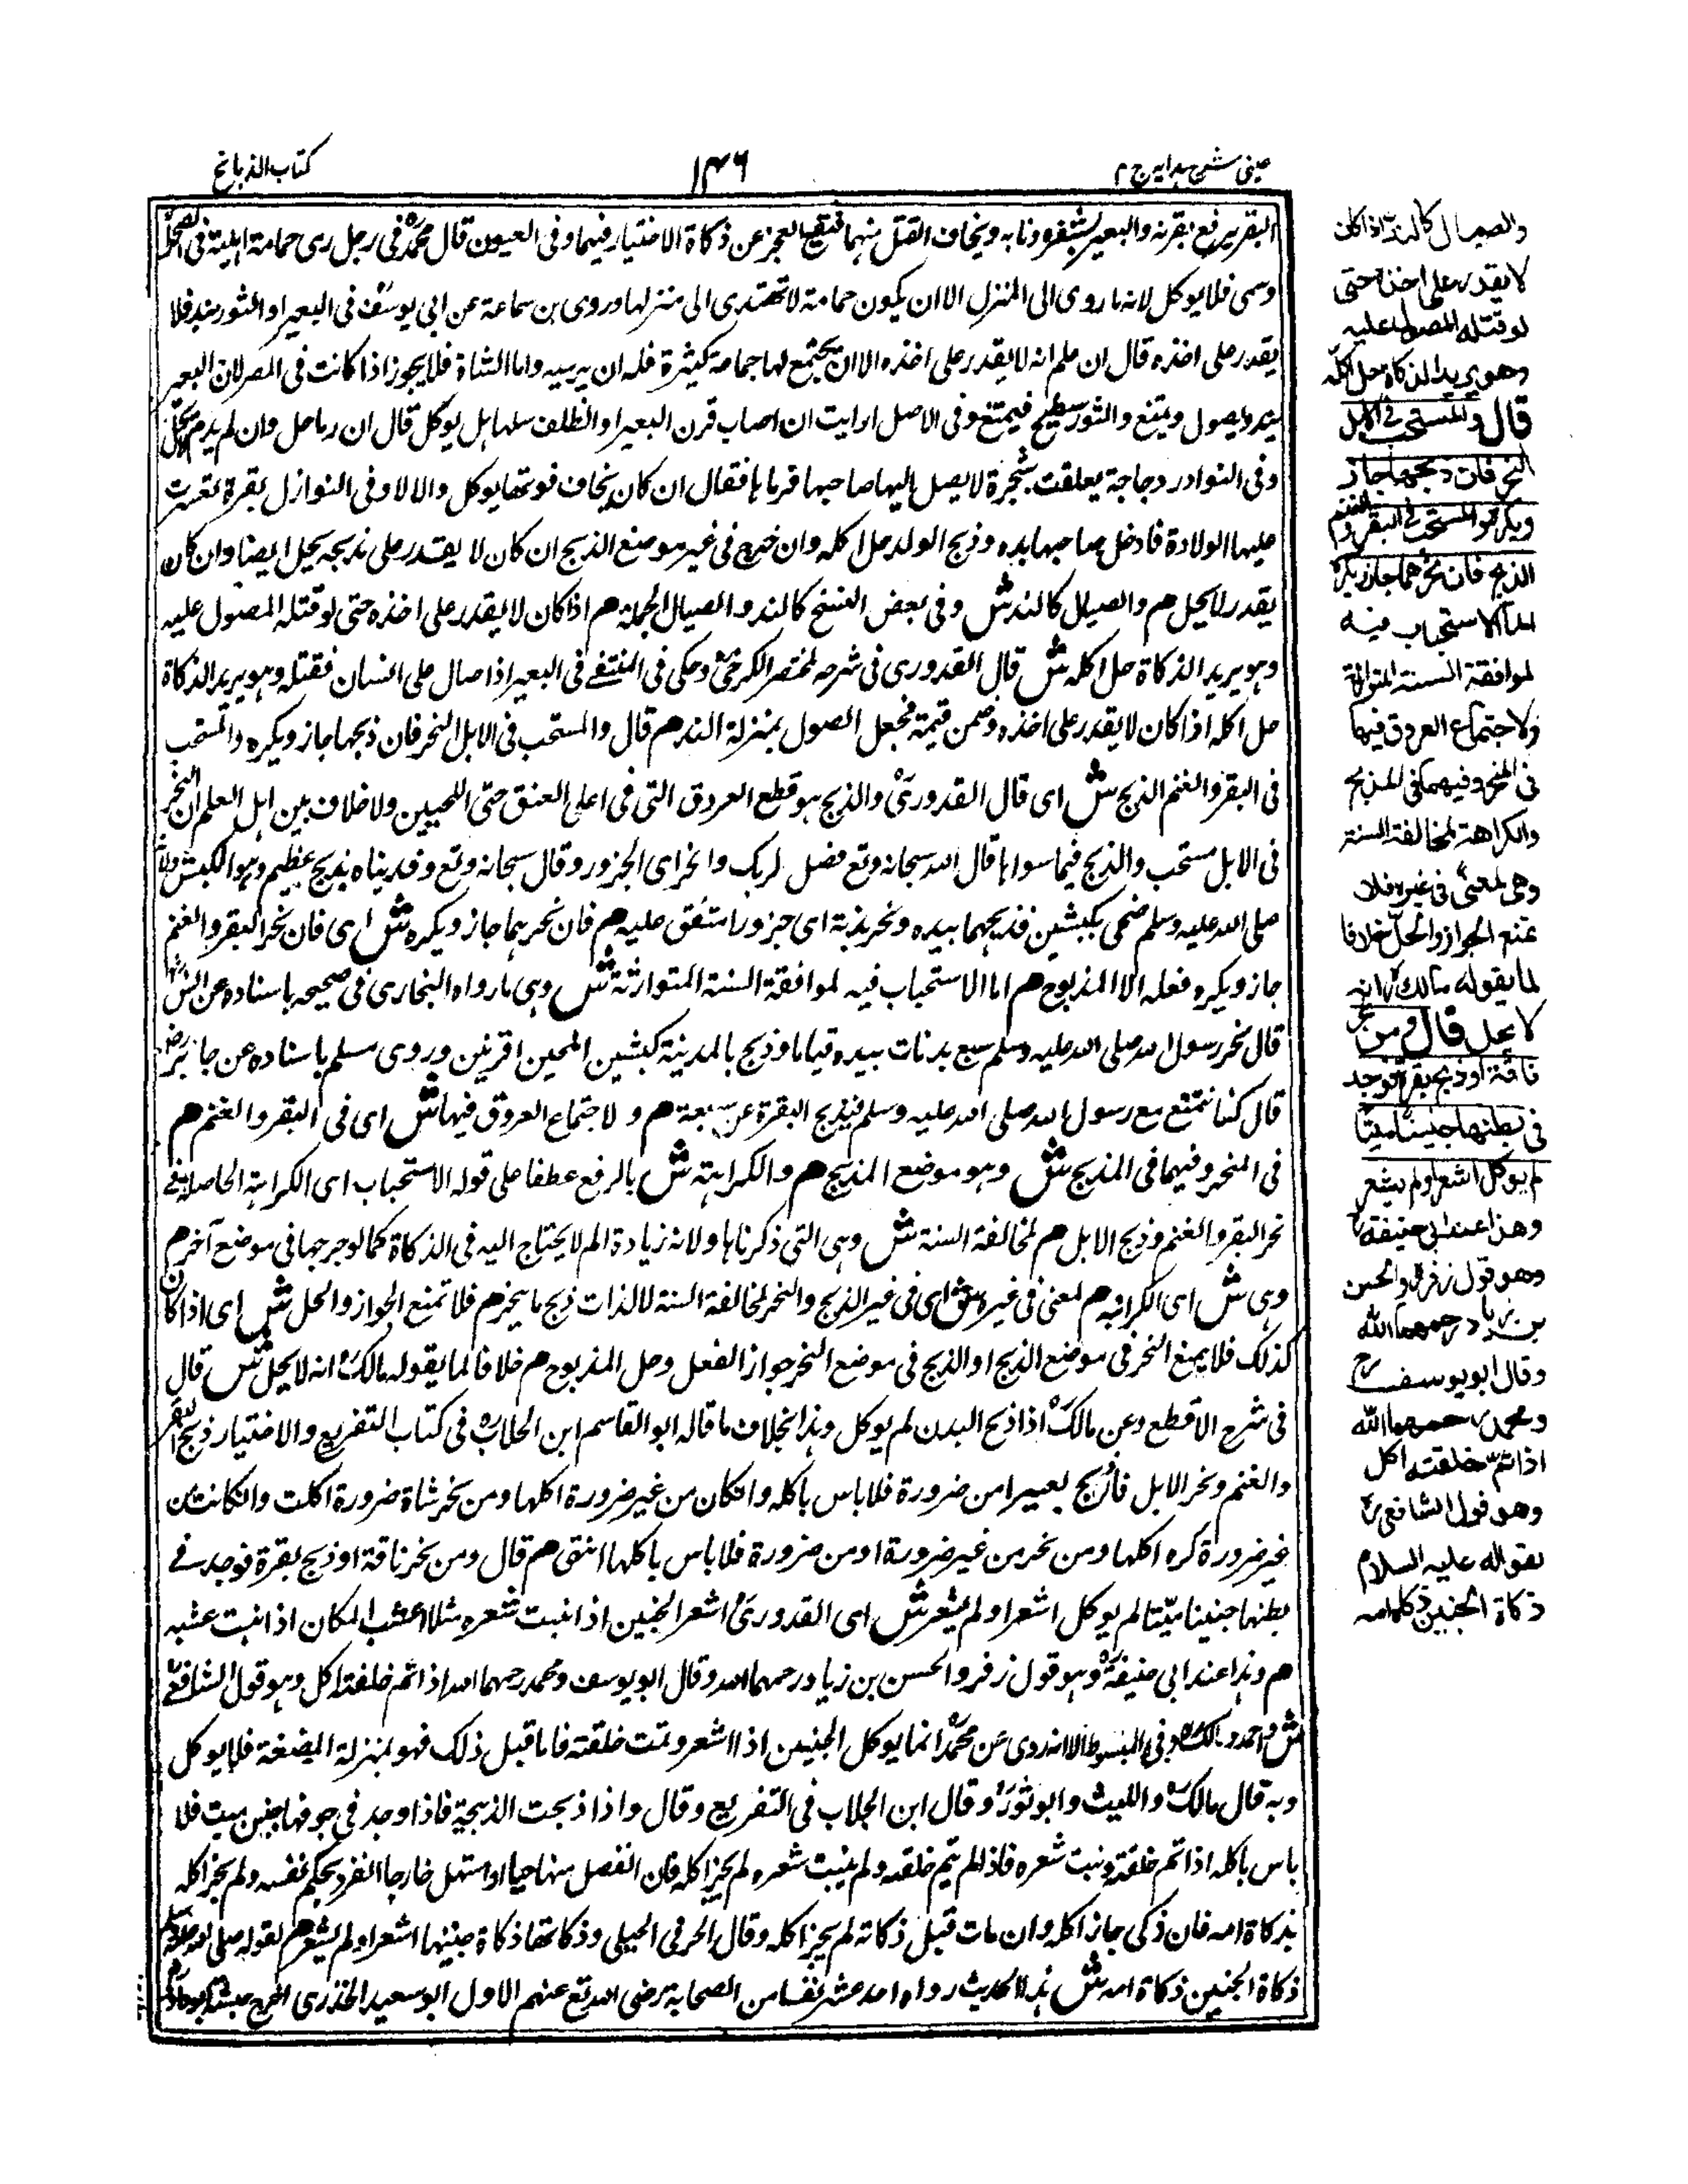 عینی شرح ہدایہ ج ۴
۱۴۶
کتاب الذبائح
البقر یدفع بقرنہ والبعیر بشفرہ ونابہ ویخاف القتل منہما فتحقق العجز عن ذکاۃ الاختیار فیہما وفی العیون قال محمدؒ فی رجل رمی حمامۃ اہلیۃ فی الصحرا
وسمی فلا یوکل لانہ ماروی الی المنزل الا ان یکون حمامۃ لا تھتدی الی منزلہا وروی بن سماعۃ عن ابی یوسفؒ فی البعیر او الثور یند فلا
یقدر علی اخذہ قال ان علم انہ لا یقدر علی اخذہ الا ان یجتمع لہا جماعۃ کثیرۃ فلہ ان یرمیہ واما الشاۃ فلا یجوز اذا کانت فی المصر لان البعیر
یند ویصول ویمتنع والثور ینطح فیمتنع وفی الاصل ارایت ان اصاب قرن البعیر او الظلف سلہا ہل یوکل قال ان رما حل وان لم یدم
وفی النوادر دجاجۃ تعلقت بشجرۃ لا یصل الیہا صاحبہا فرماہا فقال ان کان یخاف فوتھا یوکل والا لا وفی النوازل بقرۃ تعسرت
علیہا الولادۃ فادخل صاحبہا یدہ وذبح الولد حل اکلہ وان جرح فی غیر موضع الذبح ان کان لا یقتدر علی ذبحہ یحل ایضا وان کان
یقدر لا یحل ھم والصیال کالند ش وفی بعض النسخ کالند والصیال الجملۃ ھم اذا کان لا یقدر علی اخذہ حتی لو قتلہ المصول علیہ
وہو یرید الذکاۃ حل اکلہ ش قال القدوری فی شرحہ لمختصر الکرخیؒ وحکی فی المنتقے فی البعیر اذا صال علی انسان فقتلہ وہو یرید الذکاۃ
حل اکلہ اذا کان لا یقدر علی اخذہ وضمن قیمۃ فجعل الصول بمنزلۃ الند ھم قال والمستحب فی الابل النحر فان ذبحہا جاز ویکرہ والمستحب
فی البقر والغنم الذبح ش ای قال القدوریؒ والذبح ہو قطع العروق التی فی اعلی العنق حتی اللحیین ولا خلاف بین اہل العلم ان النحر
فی الابل مستحب والذبح فیما سواہا قال اللہ سبحانہ وتع فصل لربک وانحر ای الجزور وقال سبحانہ وتع وفدیناہ بذبح عظیم وہو الکبش ولانہ
صلی اللہ علیہ وسلم ضحی بکبشین فذبحہما بیدہ ونحر بدنۃ ای جزورا متفق علیہ ھم فان نحرہما جاز ویکرہ ش ای فان نحر البقر والغنم
جاز ویکرہ فعلہ الا المذبوح ھم اما الاستحباب فیہ لموافقۃ السنۃ المتوارثۃ ش وہی ما رواہ البخاری فی صحیحہ باسنادہ عن انس
قال نحر رسول اللہ صلی اللہ علیہ وسلم سبع بدنات بیدہ قیاما وذبح بالمدینۃ کبشین املحین اقرنین وروی مسلم باسنادہ عن جابر رض
قال کنا نتمتع مع رسول اللہ صلی اللہ علیہ وسلم فنذبح البقرۃ عن سبعۃ ھم ولاجتماع العروق فیہا ش ای فی البقر والغنم ھم
فی المنحر وفیہما فی المذبح ش وہو موضع المذبح ھم والکراہۃ ش بالرفع عطفا علی قولہ الاستحباب ای الکراہۃ الحاصلۃ فے
نحر البقر والغنم وذبح الابل ھم لمخالفۃ السنۃ ش وہی التی ذکرناہا ولانہ زیادۃ الم لا یحتاج الیہ فی الذکاۃ کما لو جرحہا فی موضع آخر ھم
وہی ش ای الکراہۃ ھم لمعنی فی غیرہ ش ای فی غیر الذبح والنحر لمخالفۃ السنۃ لا لذات ذبح ما ینحر ھم فلا تمنع الجواز والحل ش ای اذا کان
کذلک فلا یمنع النحر فی موضع الذبح او الذبح فی موضع النحر جواز الفعل وحل المذبوح ھم خلافا لما یقولہ مالکؒ انہ لا یحل ش قال
فی شرح الاقطع وعن مالکؒ اذا ذبح البدن لم یوکل وہذا بخلاف ما قالہ ابو القاسم ابن الجلابؒ فی کتاب التفریع والاختیار ذبح البقر
والغنم ونحر الابل فان ذبح بعیرا من ضرورۃ فلا باس باکلہ وانکان من غیر ضرورۃ اکلہا ومن نحر شاۃ ضرورۃ اکلت وانکانت من
غیر ضرورۃ کرہ اکلہا ومن نحر من غیر ضرورۃ او من ضرورۃ فلا باس باکلہا انتقی ھم قال ومن نحر ناقۃ او ذبح بقرۃ فوجد فے
بطنہا جنینا میتا لم یوکل اشعر او لم یشعر ش ای القدوریؒ اشعر الجنین اذا نبت شعرہ مثلا اعشب المکان اذا نبت عشبہ
ھم وہذا عند ابی حنیفۃؒ وہو قول زفر والحسن بن زیاد رحمہما اللہ وقال ابو یوسف ومحمد رحمہما اللہ اذا تم خلقتہ اکل وہو قول الشافعےؒ
ش واحمد ومالکؒ وفی المبسوط الا انہ روی عن محمدؒ انما یوکل الجنین اذا اشعر وتمت خلقتہ فاما قبل ذلک فہو بمنزلۃ المضغۃ فلا یوکل
وبہ قال مالکؒ واللیث وابو ثورؒ وقال ابن الجلاب فی التفریع وقال واذا ذبحت الذبیحۃ فاذا وجد فی جوفہا جنین میت فلا
باس باکلہ اذا تم خلقتہ ونبت شعرہ فاذا لم یتم خلقہ ولم ینبت شعرہ لم یجز اکلہ فان انفصل منہا حیا او استہل خارجا انفرد بحکم نفسہ ولم یجز اکلہ
بذکاۃ امہ فان ذکی جاز اکلہ وان مات قبل ذکاتہ لم یجز اکلہ وقال الخرقی الحنبلی وذکاتھا ذکاۃ جنینہا اشعر او لم یشعر ھم لقولہ صلی اللہ علیہ وسلم
ذکاۃ الجنین ذکاۃ امہ ش ہذا الحدیث رواہ احد عشر نفسا من الصحابۃ رضی اللہ تع عنہم الاول ابو سعید الخدری
والصیال کالند اذا کان
لا یقدر علی اخذہ حتی
لو قتلہ المصول علیہ
وھو یرید الذکاۃ حل اکلہ
قال والمستحب فی الابل
النحر فان ذبحہا جاز
ویکرہ والمستحب فی البقر والغنم
الذبح فان نحرہما جاز ویکرہ
اما الاستحباب فیہ
لموافقۃ السنۃ المتوارثۃ
ولاجتماع العروق فیہا
فی المنحر وفیہما فی المذبح
والکراھۃ لمخالفۃ السنۃ
وھی لمعنی فی غیرہ فلا
تمنع الجواز والحل خلافا
لما یقولہ مالکؒ انہ
لا یحل قال ومن نحر
ناقۃ او ذبح بقرۃ فوجد
فی بطنہا جنینا میتا
لم یوکل اشعر او لم یشعر
وھذا عند ابی حنیفۃؒ
وھو قول زفرؒ والحسن
بن زیاد رحمھما اللہ
وقال ابو یوسف
ومحمد رحمھما اللہ
اذا تم خلقتہ اکل
وھو قول الشافعیؒ
لقولہ علیہ السلام
ذکاۃ الجنین ذکاۃ امہ